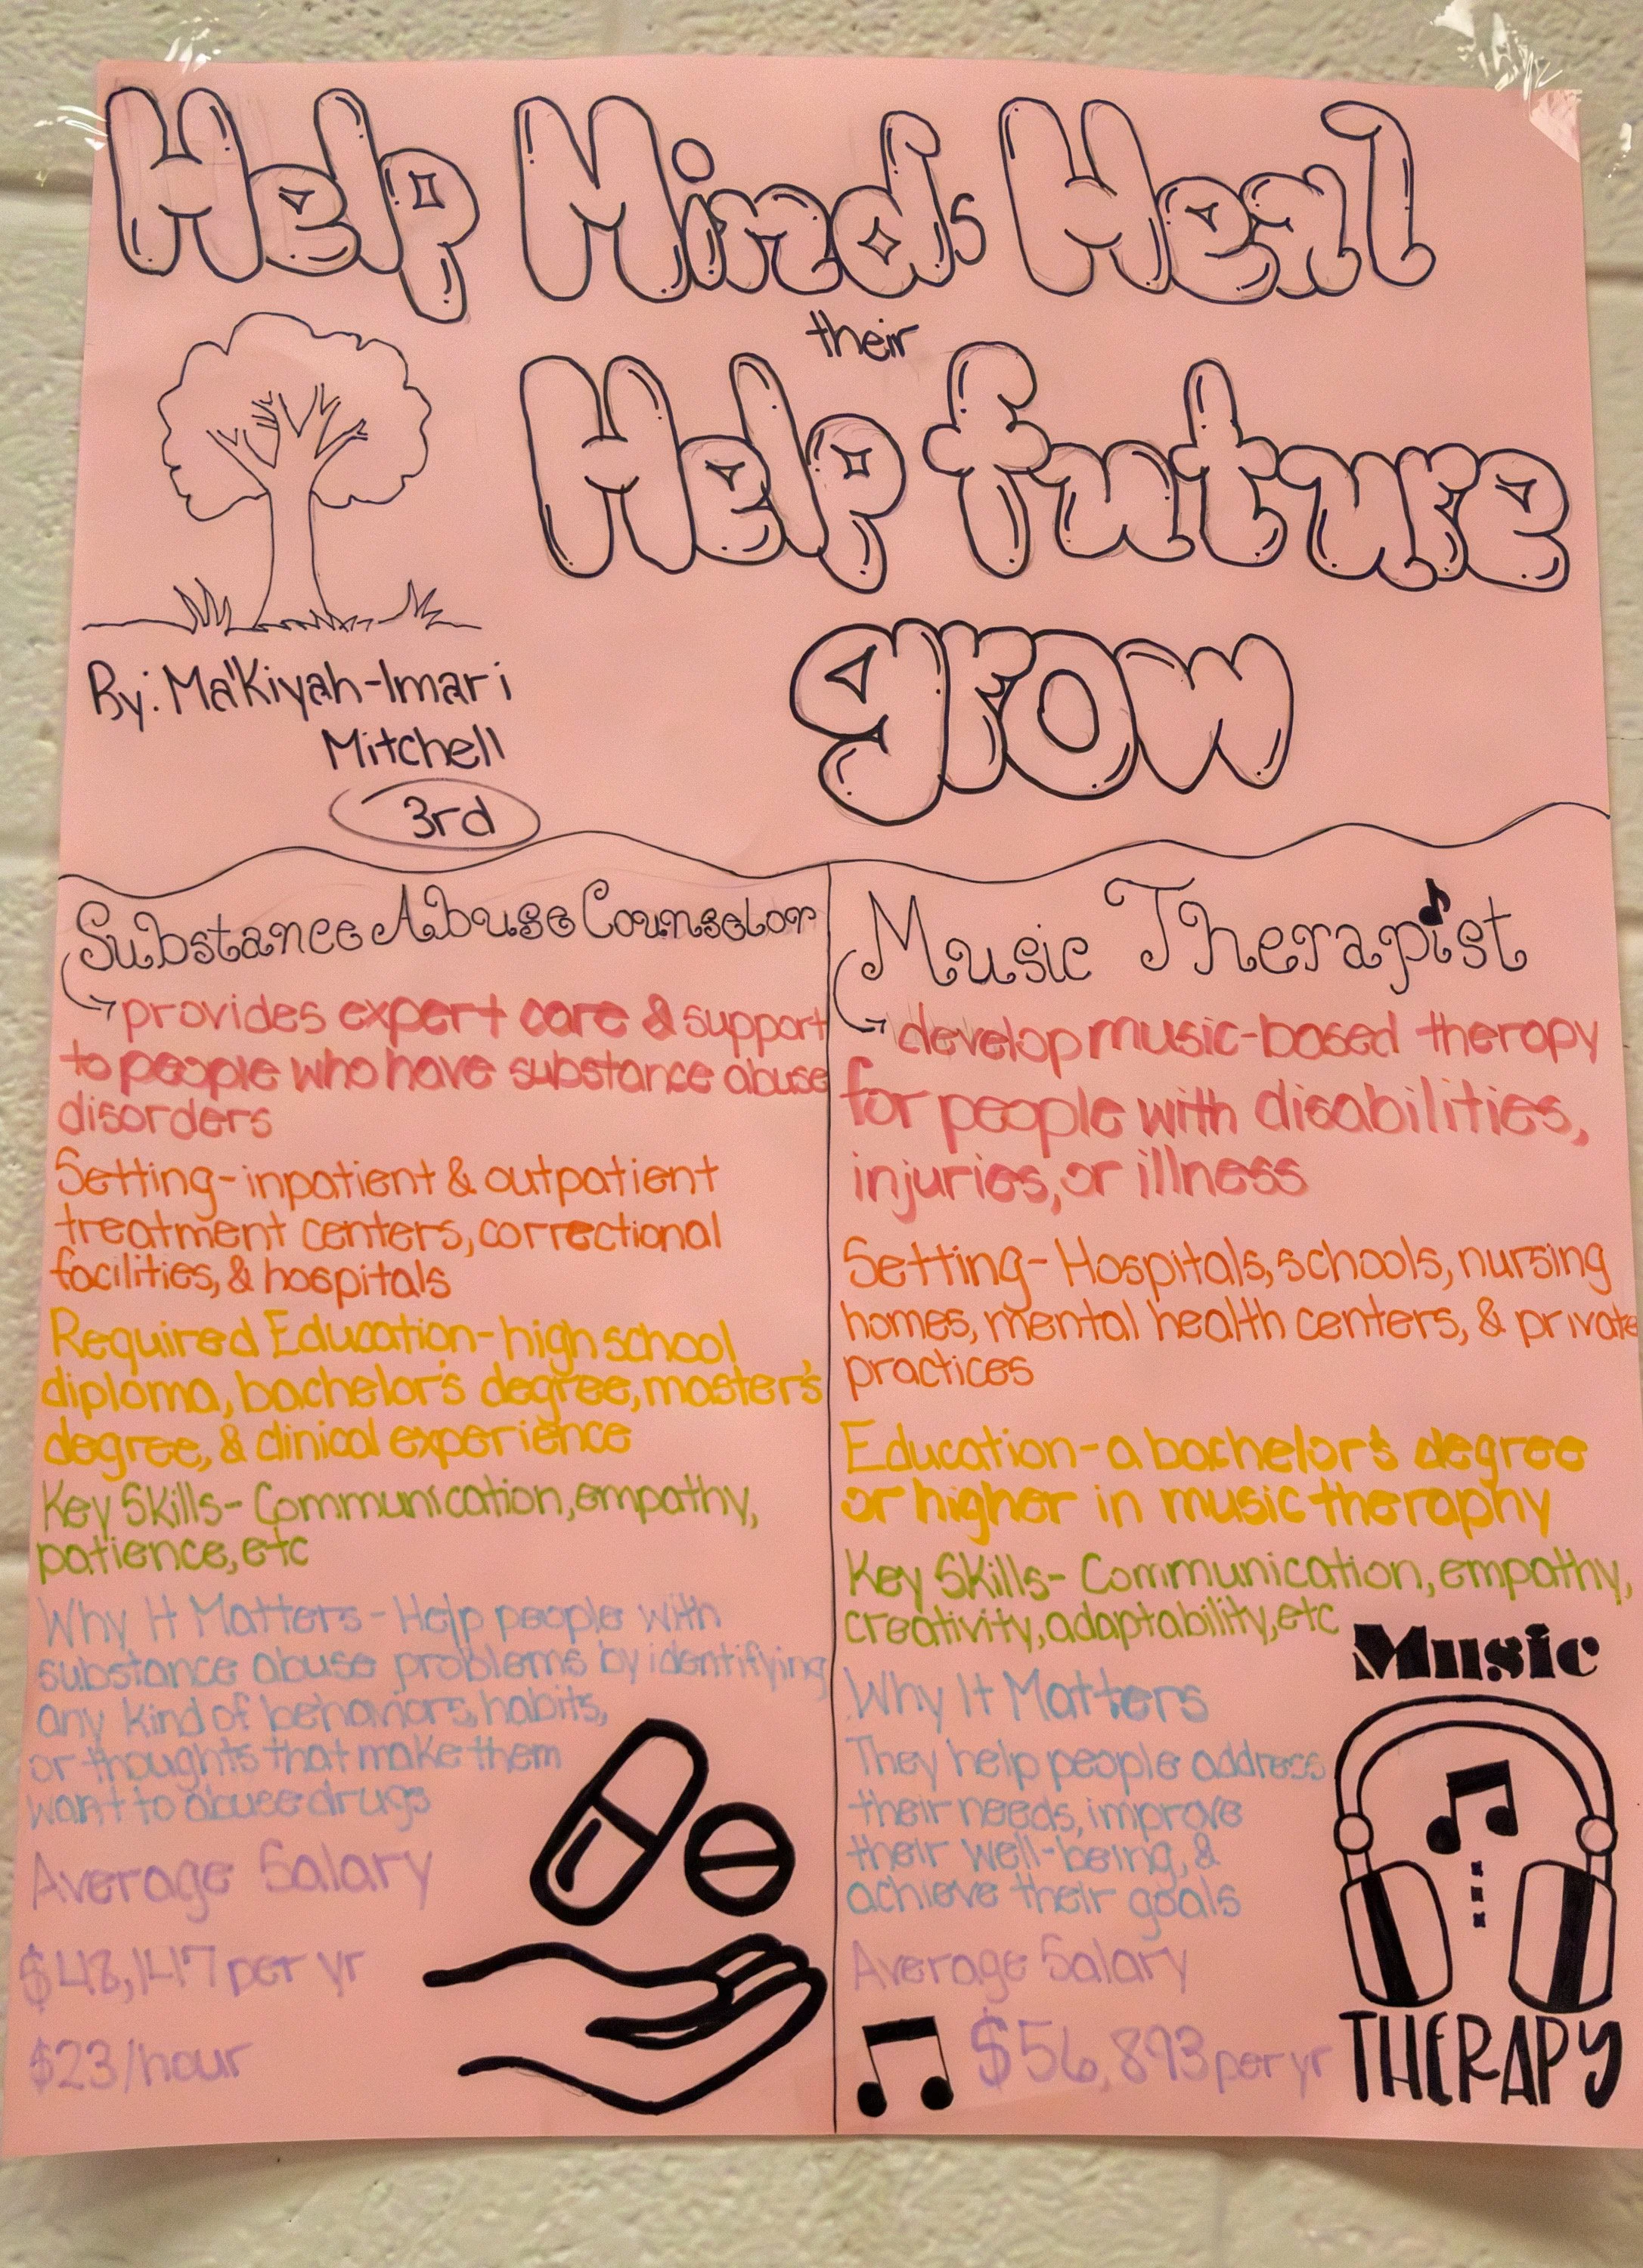 Help Minds Heal
their
Help future
grow
By: Ma'Kiyah-Imari
Mitchell
3rd
Substance Abuse Counselor
provides expert care & support
to people who have substance abuse
disorders
Setting- inpatient & outpatient
treatment centers, correctional
facilities, & hospitals
Required Education- high school
diploma, bachelor's degree, master's
degree, & clinical experience
Key Skills- Communication, empathy,
patience, etc
Why It Matters - Help people with
substance abuse problems by identifying
any kind of behaviors, habits,
or thoughts that make them
want to abuse drugs
Average Salary
$48,147 per yr
$23/hour
Music Therapist
develop music-based therapy
for people with disabilities,
injuries, or illness
Setting- Hospitals, schools, nursing
homes, mental health centers, & private
practices
Education- a bachelor's degree
or higher in music theraphy
Key Skills- Communication, empathy,
creativity, adaptability, etc
Why It Matters
They help people address
their needs, improve
their well-being, &
achieve their goals
Average Salary
$56,893 per yr
Music
THERAPY